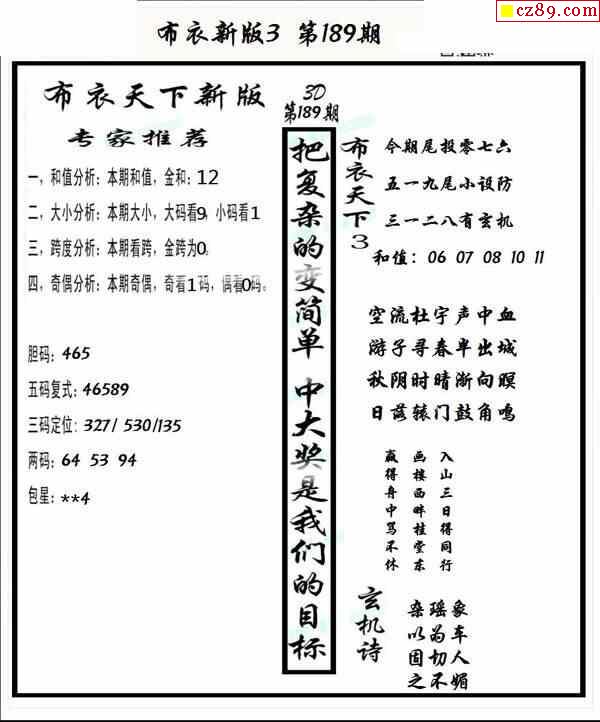 cz89.com
布衣新版3 第189期
布衣天下新版
专家推荐
一，和值分析：本期和值，金和：12
二，大小分析：本期大小，大码看9，小码看1
三，跨度分析：本期看跨，金跨为0。
四，奇偶分析：本期奇偶，奇看1码，偶看0码。
胆码：465
五码复式：46589
三码定位：327/ 530/135
两码：64 53 94
包星：**4
3D
第189期
把复杂的变简单 中大奖是我们的目标
布衣天下3
今期尾投零七六
五一九尾小设防
三一二八有玄机
和值：06 07 08 10 11
空流杜宇声中血
游子寻春半出城
秋阴时晴渐向暝
日落辕门鼓角鸣
入山三日得同行
画楼西畔桂堂东
赢得舟中骂不休
玄机诗
象车人媚
瑶为切不
杂以固之